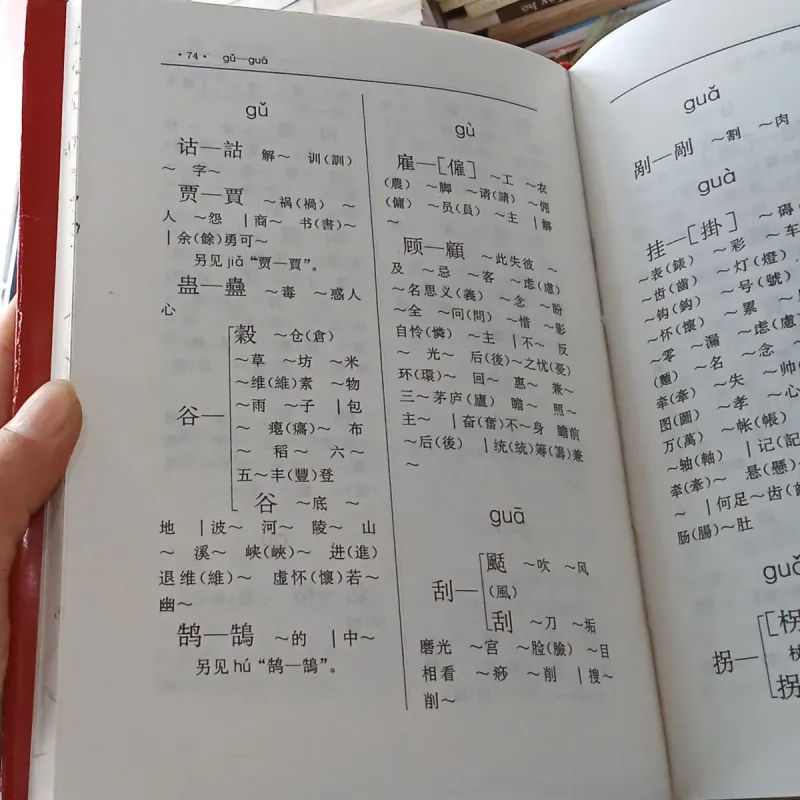 ·74· gǔ—guā
gǔ
诂—詁 解～ 训(訓)
～ 字～
贾—賈 ～祸(禍) ～
人 ～怨 |商～ 书(書)～
|余(餘)勇可～
另见 jiǎ “贾—賈”。
蛊—蠱 ～毒 ～惑人
心
谷—
穀 ～仓(倉)
～草 ～坊 ～米
～维(維)素 ～物
～雨 ～子 |包
～ 瘪(癟)～ 布
～ 稻～ 六～
五～丰(豐)登
谷 ～底 ～
地 |波～ 河～ 陵～ 山
～ 溪～ 峡(峽)～ 进(進)
退维(維)～ 虚怀(懷)若～
幽～
鹄—鵠 ～的 |中～
另见 hú “鹄—鵠”。
gù
雇—[僱] ～工 ～农
(農) ～脚 ～请(請) ～佣
(傭) ～员(員) ～主 |解
～
顾—顧 ～此失彼 ～
及 ～忌 ～客 ～虑(慮)
～名思义(義) ～念 ～盼
～全 ～问(問) ～惜 ～影
自怜(憐) ～主 |不～ 反
～ 光～ 后(後)～之忧(憂)
环(環)～ 回～ 惠～ 兼～
三～茅庐(廬) 瞻～ 照～
主～ |奋(奮)不～身 瞻前
～后(後) |统(統)筹(籌)兼
～
guā
刮—
颳 ～吹 ～风
(風)
刮 ～刀 ～垢
磨光 ～宫 ～脸(臉) ～目
相看 ～痧 ～削 |搜～
削～
guǎ
剐—剮 ～割 ～肉
guà
挂—[掛] ～碍
～表(錶) ～彩 ～车
～齿(齒) ～灯(燈)
～钩(鈎) ～号(號)
～怀(懷) ～累
～零 ～漏 ～虑(慮)
(麵) ～名 ～念 ～
牵(牽) ～失 ～帅
图(圖) ～孝 ～心
万(萬) ～帐(帳)
～轴(軸) |记(記
牵(牽)～ 悬(懸)～
～ |何足～齿(
肠(腸)～肚
guǎ
拐—
[枴
拐